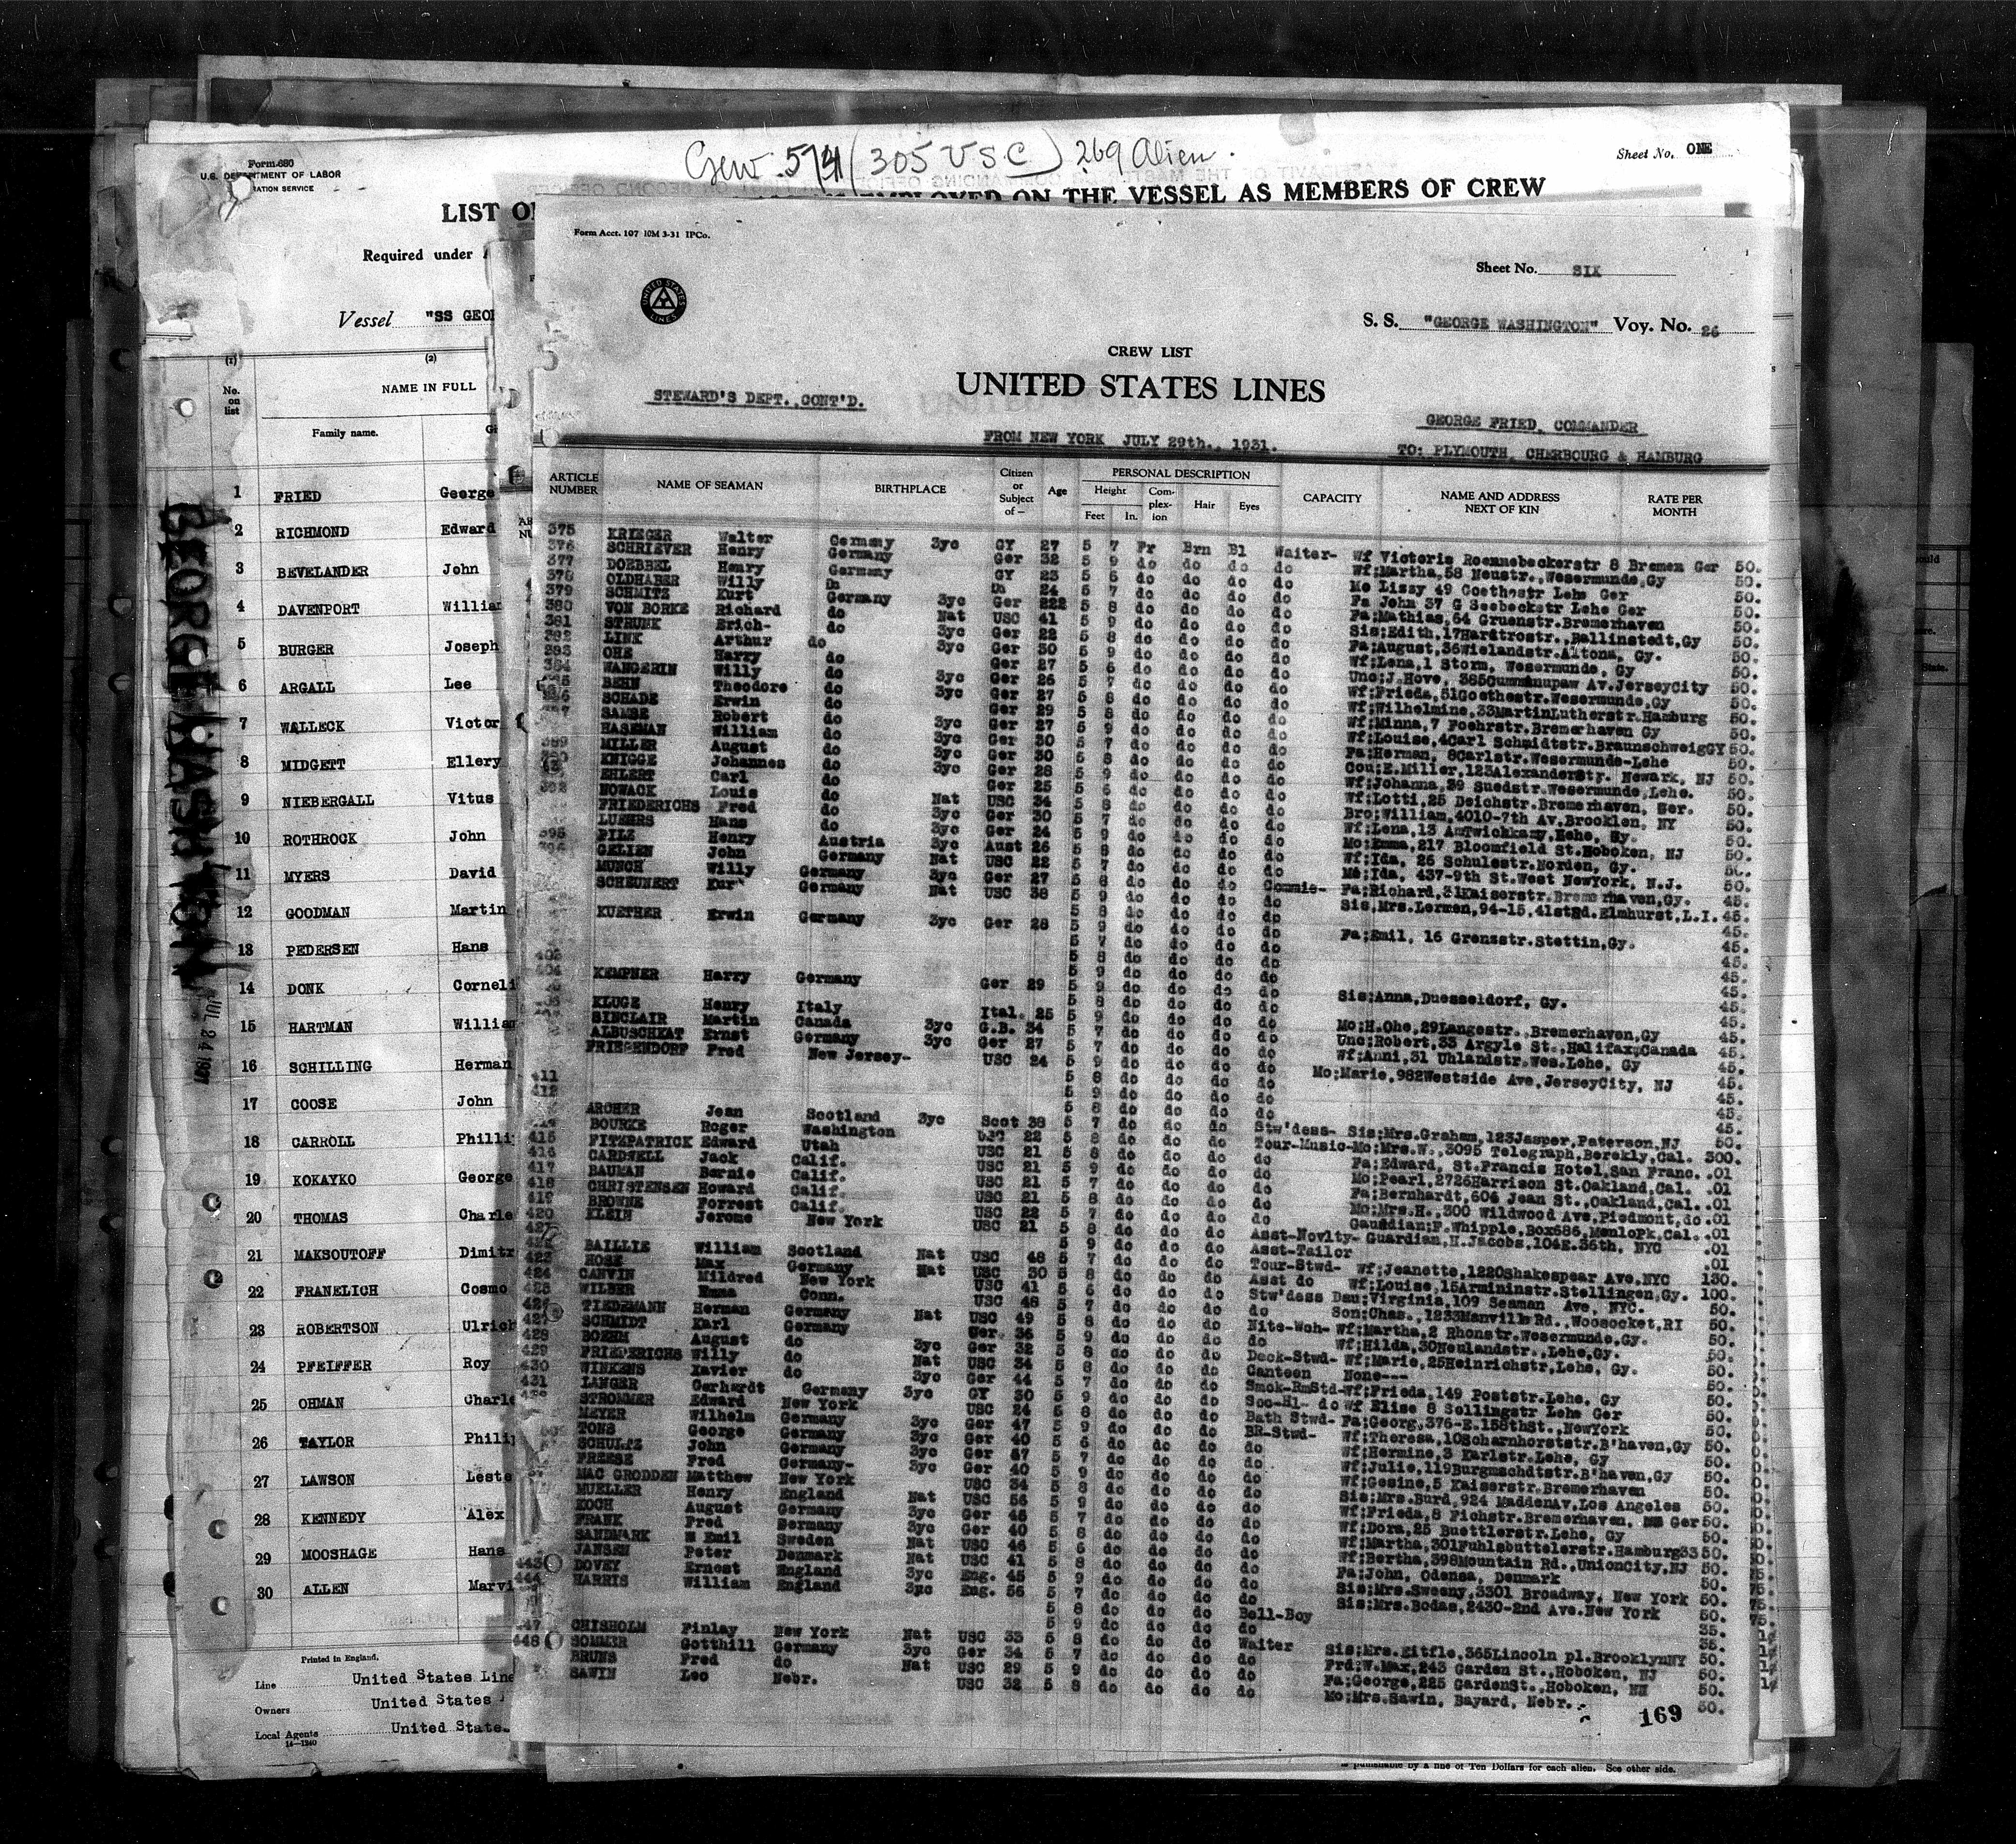 Form 680
U. S. DEPARTMENT OF LABOR
Crew 574 (305 USC) 269 Alien.
Sheet No. ONE
LIST O
EMPLOYED ON THE VESSEL AS MEMBERS OF CREW
Required under
Vessel "SS GEO
(1) (2)
No. on list
NAME IN FULL
Family name.
1 FRIED George
2 RICHMOND Edward
3 BEVELANDER John
4 DAVENPORT Willia
5 BURGER Joseph
6 ARGALL Lee
7 WALLECK Victor
8 MIDGETT Ellery
9 NIEBERGALL Vitus
10 ROTHROCK John
11 MYERS David
12 GOODMAN Martin
13 PEDERSEN Hans
14 DONK Corneli
15 HARTMAN William
16 SCHILLING Herman
17 COOSE John
18 CARROLL Philli
19 KOKAYKO George
20 THOMAS Charle
21 MAKSOUTOFF Dimitr
22 FRANELICH Cosmo
23 ROBERTSON Ulrich
24 PFEIFFER Roy
25 OHMAN Charle
26 TAYLOR Phili
27 LAWSON Leste
28 KENNEDY Alex
29 MOOSHAGE Hans
30 ALLEN Marvi
Printed in England.
Line United States Line
Owners United States
Local Agents United State
14—1240
GEORGE WASHINGTON
Form Acct. 107 10M 3-31 IPCo.
Sheet No. SIX
UNITED STATES LINES
S. S. "GEORGE WASHINGTON" Voy. No. 26
CREW LIST
UNITED STATES LINES
STEWARD'S DEPT. CONT'D.
GEORGE FRIED, COMMANDER
FROM NEW YORK JULY 29th., 1931.
TO: PLYMOUTH, CHERBOURG & HAMBURG
ARTICLE NUMBER NAME OF SEAMAN BIRTHPLACE Citizen or Subject of— Age PERSONAL DESCRIPTION Height Feet In. Complexion Hair Eyes CAPACITY NAME AND ADDRESS NEXT OF KIN RATE PER MONTH
375 KRIEGER Walter Germany 3yc GY 27 5 7 Fr Brn Bl Waiter- Wf Victoria Roennebeckerstr 8 Bremen Ger 50.
376 SCHRIEVER Henry Germany Ger 32 5 9 do do do do Wf;Martha,58 Neustr.,Wesermunde,Gy 50.
377 DOEBBEL Henry Germany GY 23 5 do do do do Mo Lizzy 49 Goethestr Lehe Ger 50.
378 OLDHABER Willy Do Do 24 5 7 do do do do Fa John 37 G Seebeckstr Lehe Ger 50.
379 SCHMITZ Kurt Germany 3yc Ger 222 5 8 do do do do Fa;Mathias,64 Gruenstr.Bremerhaven 50.
380 VON BORKE Richard do Nat USC 41 5 9 do do do do Sis;Edith,17Hardtrostr.,Ballinstedt,Gy 50.
381 STRUNK Erich- do 3yc Ger 22 5 8 do do do do Fa;August,36Wielandstr.Altona, Gy. 50.
382 LINK Arthur do 3yc Ger 30 5 9 do do do do Wf;Lena,1 Storm, Wesermunde, Gy 50.
383 OHE Harry do Ger 27 5 do do do do Unc;J.Hove, 385 Av.JerseyCity 50.
384 WANGERIN Willy do 3yc Ger 26 5 7 do do do do Wf;Frieda,51Goethestr.Wesermunde,Gy 50.
BEHN Theodore do 3yc Ger 27 5 do do do do Wf;Wilhelmine,33MartinLutherstr.Hamburg 50.
SCHADE Erwin do Ger 29 5 8 do do do do Wf;Minna,7 Foehrstr.Bremerhaven Gy 50.
SAMSE Robert do 3yc Ger 27 5 9 do do do do Wf;Louise,4Carl Schmidtstr.BraunschweigGY 50.
HASEMAN William do 3yc Ger 30 5 7 do do do do Fa;Herman, 8Carlstr.Wesermunde-Lehe 50.
389 MILLER August do 3yc Ger 30 5 8 do do do do Cou;E.Miller,123Alexanderstr. Newark, NJ 50.
KNIGGE Johannes do 3yc Ger 28 5 9 do do do do Wf;Johanna,29 Suedstr.Wesermunde,Lehe. 50.
EHLERT Carl do Ger 25 5 6 do do do do Wf;Lotti,25 Deichstr.Bremerhaven, Ger. 50.
392 NOWACK Louis do Nat USC 34 5 8 do do do do Bro;William,4010-7th Av.Brooklen, NY 50.
FRIEDERICHS Fred do 3yc Ger 30 5 7 do do do do Wf;Lena,13 Lehe, Gy. 50.
LUEHRS Hans do 3yc Ger 24 5 9 do do do do Mo;Emma,217 Bloomfield St.Hoboken, NJ 50.
395 PILZ Henry Austria 3yc Aust 26 5 8 do do do do Wf;Ida, 26 Schulestr.Norden, Gy. 50.
GELIEN John Germany Nat USC 22 5 7 do do do do Mo;Ida, 437-9th St.West NewYork, N.J. 50.
MUNCH Willy Germany 3yc Ger 27 5 8 do do do Commis- Fa;Richard,31Kaiserstr.Bremerhaven,Gy. 45.
SCHEUNERT Kurt Germany Nat USC 38 5 9 do do do do Sis,Mrs.Lerman,94-15,41stRd.Elmhurst,L.I. 45.
KUETHER Erwin Germany 3yc Ger 28 5 do do do do Fa;Emil, 16 Grensstr.Stettin,Gy. 45.
403
404 KEMPNER Harry Germany Ger 29 5 9 do do do do Sis;Anna,Duesseldorf, Gy. 45.
KLUGE Henry Italy Ital. 25 5 9 do do do do Mo;H.Ohe,29Langestr.,Bremerhaven,Gy 45.
SINCLAIR Martin Canada 3yc G.B. 34 5 7 do do do do Unc;Robert,33 Argyle St.,Halifax,Canada 45.
ALBUSCHKAT Ernst Germany 3yc Ger 27 5 7 do do do do Wf;Anni,31 Uhlandstr.Wes.Lehe, Gy 45.
FRIESENDORF Fred New Jersey- USC 24 5 9 do do do do Mo;Marie,982Westside Ave,JerseyCity, NJ 45.
411
412
ARCHER Jean Scotland 3yc Scot 38 5 7 do do do Stw'dess- Sis;Mrs.Graham,123Jasper,Paterson,NJ 50.
BOURKE Roger Washington USC 22 5 8 do do do Tour-Music- Mo;Mrs.W.,3095 Telegraph,Berekly,Cal. 300.
415 FITZPATRICK Edward Utah USC 21 5 8 do do do do Fa;Edward, St.Francis Hotel,San Franc. .01
416 CARDWELL Jack Calif. USC 21 5 9 do do do do Mo;Pearl,2726Harrison St.Oakland,Cal. .01
417 BAUMAN Bernie Calif. USC 21 5 7 do do do do Fa;Bernhardt,604 Jean St.,Oakland,Cal. .01
418 CHRISTENSEN Howard Calif. USC 21 5 8 do do do do Mo;Mrs.H.,300 Wildwood Ave,Piedmont,do .01
419 BROWNE Forrest Calif. USC 22 5 7 do do do do Guardian;F.Whipple,Box686,MenloPk,Cal. .01
420 KLEIN Jerome New York USC 21 5 8 do do do Asst-Novlty- Guardian,H.Jacobs,104E.36th, NYC .01
5 9 do do do Asst-Tailor .01
BAILLIE William Scotland Nat USC 48 5 7 do do do Tour-Stwd- Wf;Jeanette,1220Shakespear Ave.NYC 130.
423 ROSE Max Germany Nat USC 30 5 8 do do do Asst do Wf;Louise,15Armininstr.Stellingen,Gy. 100.
424 CANVIN Mildred New York USC 41 5 do do do Stw'dess Dau;Virginia,109 Seaman Ave, NYC. 50.
425 WILBER Emma Conn. USC 48 5 7 do do do do Son;Chas.,1233Manville Rd.,Woosocket,RI 50.
426 TIEDEMANN Herman Germany Nat USC 49 5 8 do do do Nite-Wch- Wf;Martha,2 Rhonstr.Wesermunde,Gy. 50.
427 SCHMIDT Karl Germany Ger. 36 5 9 do do do do Wf;Hilda,30Neulandstr.,Lehe,Gy. 50.
428 BOEHM August do 3yc Ger 32 5 8 do do do Deck-Stwd- Wf;Marie,25Heinrichstr,Lehe, Gy. 50.
429 FRIEDERICHS Willy do Nat USC 34 5 8 do do do Canteen None--- 50.
430 WINKENS Xavier do 3yc Ger 44 5 7 do do do Smok-RmStd- Wf;Frieda,149 Poststr.Lehe, Gy 50.
431 LANGER Gerhardt Germany 3yc GY 30 5 9 do do do Soc-Hl- do Wf Elise 8 Sollingstr Lehe Ger 50.
STROMMER Edward New York USC 24 5 8 do do do Bath Stwd- Fa;Georg,376-E.158thSt.,NewYork 50.
MEYER Wilhelm Germany 3yc Ger 47 5 9 do do do BR-Stwd- Wf;Theresa,10Scharnhorststr.B'haven,Gy 50.
TONS George Germany 3yc Ger 40 5 6 do do do do Wf;Hermine,3 Karlstr.Lehe, Gy 50.
SCHULTZ John Germany 3yc Ger 5 7 do do do do Wf;Julie,119Burgmschdtstr.B'haven,Gy 50.
FREESE Fred Germany- 3yc Ger 40 5 9 do do do do Wf;Gesine,5 Kaiserstr.Bremerhaven 50.
MAC GRODDEN Matthew New York USC 34 5 8 do do do do Sis;Mrs.Burd,924 MaddenAv.Los Angeles 50.
MUELLER Henry England Nat USC 56 5 9 do do do do Wf;Frieda,8 Fichstr.Bremerhaven, Ger 50.
KOCH August Germany 3yc Ger 5 7 do do do do Wf;Dora,25 Buettlerstr.Lehe, Gy 50.
FRANK Fred Germany 3yc Ger 40 5 8 do do do do Wf;Martha,301Fuhlsbuttelerstr.Hamburg33 50.
SANDMARK Emil Sweden Nat USC 46 5 do do do do Wf;Bertha,398Mountain Rd.,UnionCity,NJ 50.
JANSEN Peter Denmark Nat USC 41 5 8 do do do do Fa;John, Odensa, Denmark 50.
443 DOVEY Ernest England 3yc Eng. 45 5 9 do do do do Sis;Mrs.Sweeny,3301 Broadway, New York 50.
444 HARRIS William England 3yc Eng. 56 5 7 do do do do Sis;Mrs.Bodas,2430-2nd Ave.New York 50.
5 8 do do do Bell-Boy 35.
447 CHISHOLM Finlay New York Nat USC 33 5 8 do do do Waiter Sis;Mrs.Eitfle,365Lincoln pl.BrooklynNY 50.
448 SOMMER Gotthill Germany 3yc Ger 34 5 7 do do do do Frd;W.Max,243 Garden St.,Hoboken, NJ 50.
BRUNS Fred do Nat USC 29 5 9 do do do do Fa;George,225 GardenSt.,Hoboken, 50.
SAWIN Leo Nebr. USC 32 5 8 do do do do Mo;Mrs.Sawin, Bayard, Nebr. 50.
169
is punishable by a fine of Ten Dollars for each alien. See other side.